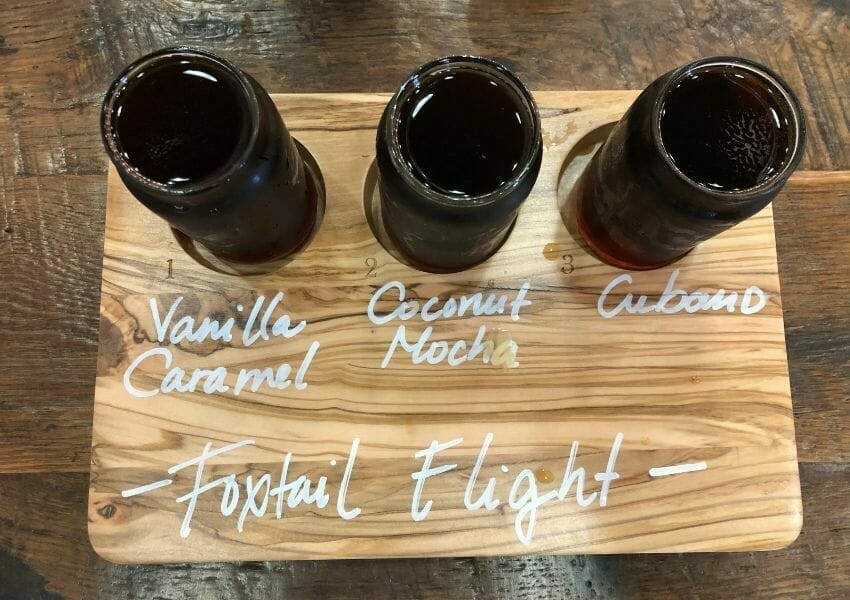 1 2 3
Vanilla
Caramel
Coconut
Mocha
Cubano
- Foxtail Flight -